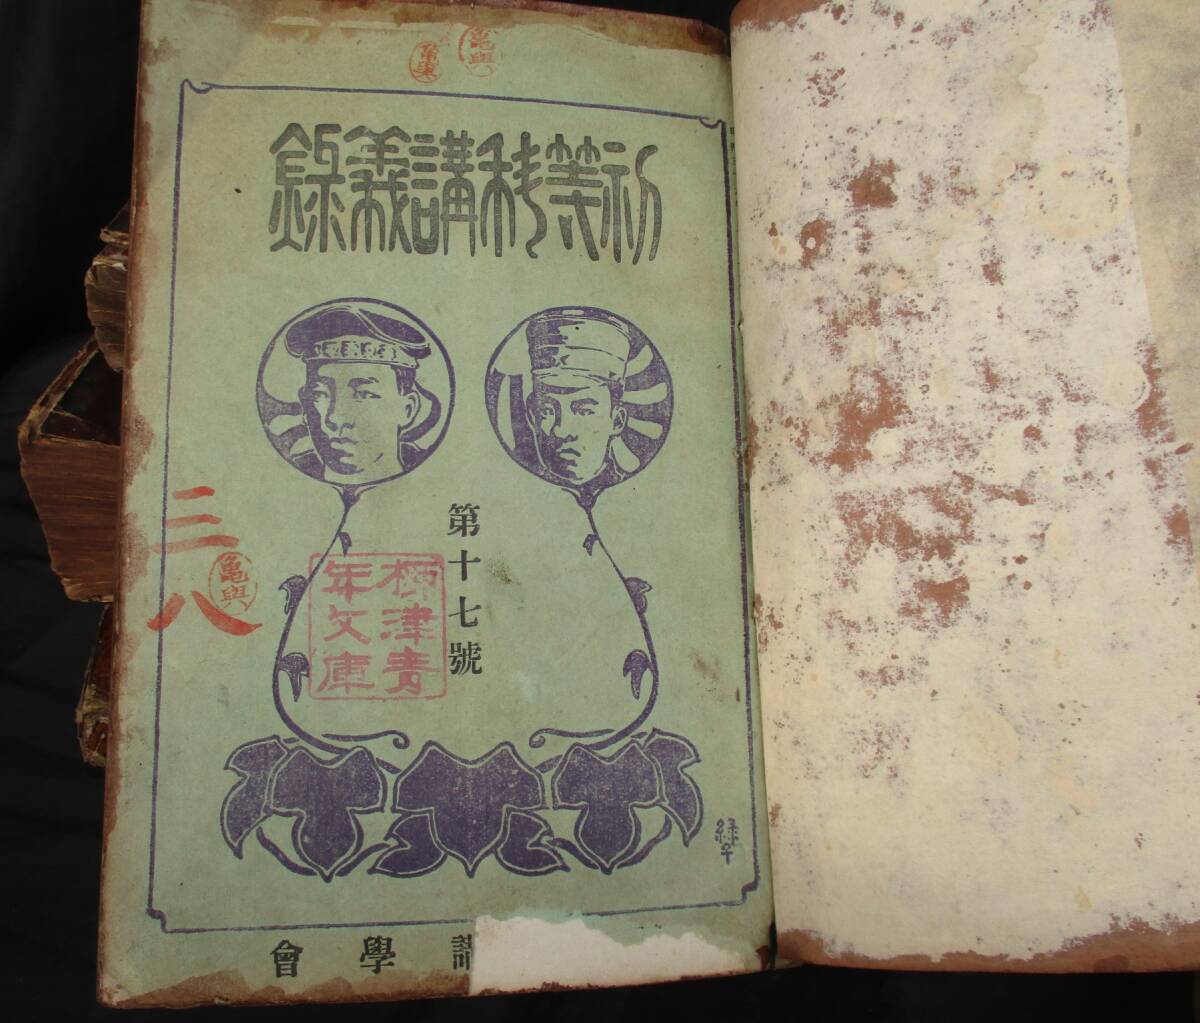 龜與
龜與
初等科講義錄
第十七號
三八
龜與
柳津青
年文庫
學會